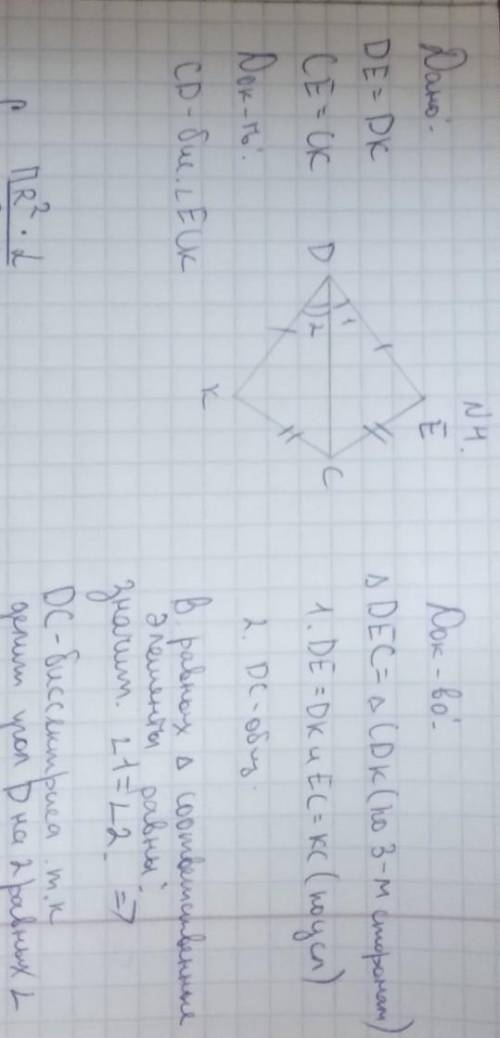 №4.
Дано:
DE = DK
CE = CK
Док-ть:
CD - бис. ∠ECK
D
E
K
C
1
2
Док-во:
△DEC = △CDK (по 3-м сторонам)
1. DE = DK и EC = KC (по усл)
2. DC - общ.
В равных △ соответственные
элементы равны.
значит. ∠1 = ∠2. =>
DC - биссектриса т.к
делит угол D на 2 равных ∠
ПR² · L